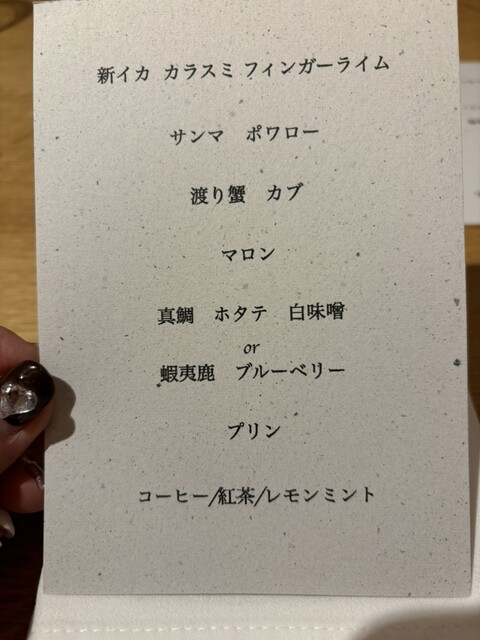 新イカ カラスミ フィンガーライム
サンマ ポワロー
渡り蟹 カブ
マロン
真鯛 ホタテ 白味噌
or
蝦夷鹿 ブルーベリー
プリン
コーヒー/紅茶/レモンミント